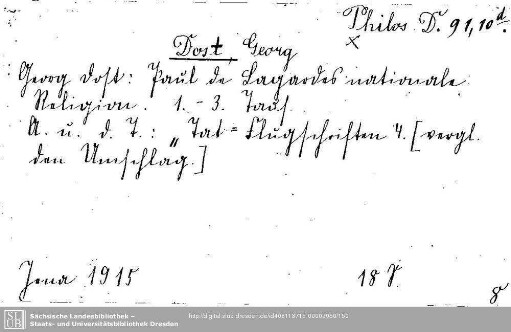 Philos. D. 91,10 d.
x
Dost, Georg
Georg Dost: Paul de Lagardes nationale
Religion. 1.-3. Taus.
A. u. d. T.: „Tat-Flugschriften 4. [vergl.
den Umschlag.]
Jena 1915
18 S.
8
Sächsische Landesbibliothek –
Staats- und Universitätsbibliothek Dresden
SLUB